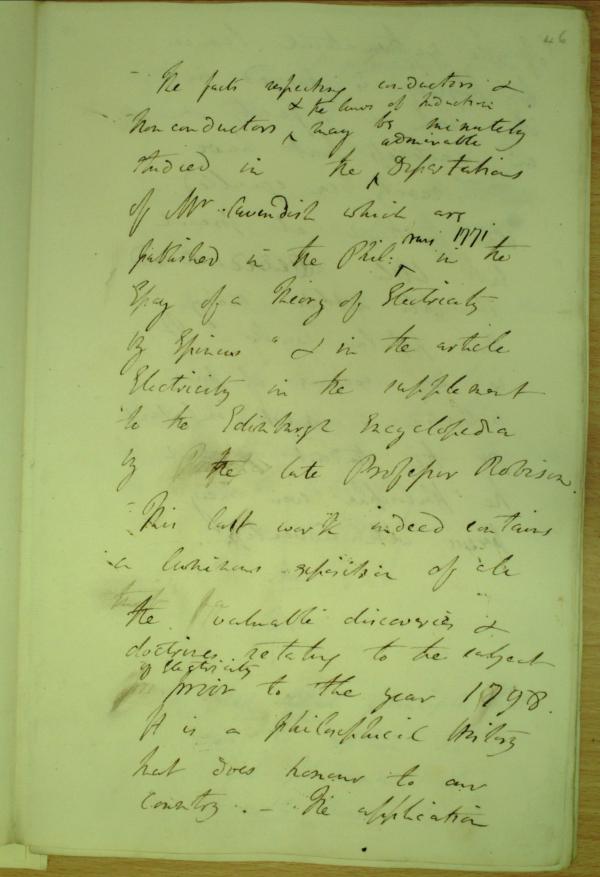 46
- The facts respecting conductors &
& the laws of Induction
Non conductors ‸ may be minutely
admirable
studied in the ‸ Dissertations
of Mr. Cavendish which are
published in the Phil: ‸ Trans 1771 in the
Essay of a Theory of Electricity
by Epinus " & in the article
Electricity in the supplement
to the Edinburgh Encyclopedia
by the late Professor Robison.
- This last work indeed contains
a luminous exposition of all
the valuable discoveries &
doctrines relating to the subject
of Electricity
prior to the year 1798.
It is a philosophical history
that does honour to our
Country. - The application